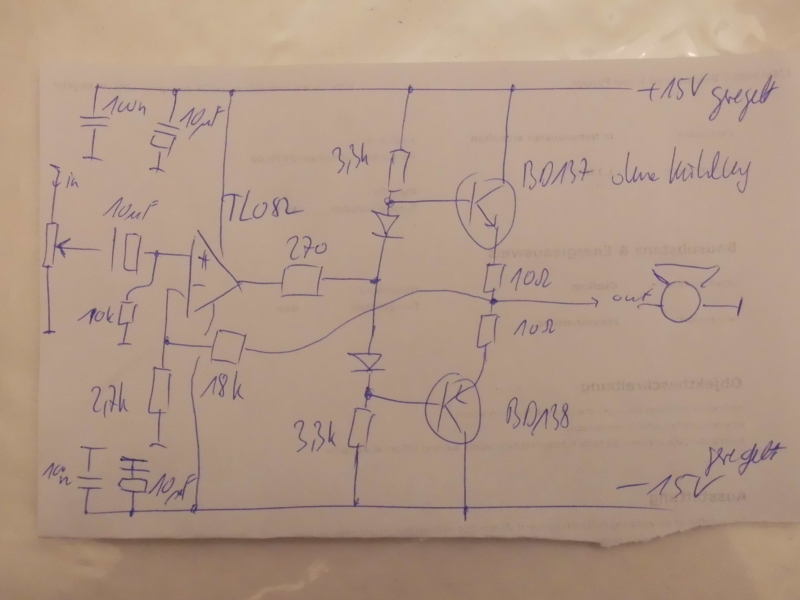 100n
10µF
+15V geregelt
3,3k
BD137 ohne Kühlung
in
10µF
TL082
270
10Ω
+
-
out
10k
10Ω
18k
2,7k
3,3k
BD138
10µF
-15V geregelt